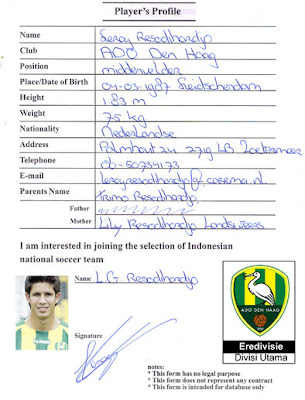 Player's Profile
Name Leroy Resodihardjo
Club ADO Den Haag
Position middenvelder
Place/Date of Birth 04-03-1987 Leidschendam
Height 1.83 m
Weight 75 kg
Nationality Nederlandse
Address Palmhout 24 2719 LB Zoetermeer
Telephone 06-50734173
E-mail leroyresodihardjo@casema.nl
Parents Name Resodihardjo
Father
Mother Lily Resodihardjo
I am interested in joining the selection of Indonesian
national soccer team
Name L.G. Resodihardjo
ADO DEN HAAG
Eredivisie
Divisi Utama
Signature
notes:
* This form has no legal purpose
* This form does not represent any contract
* This form is intended for database only